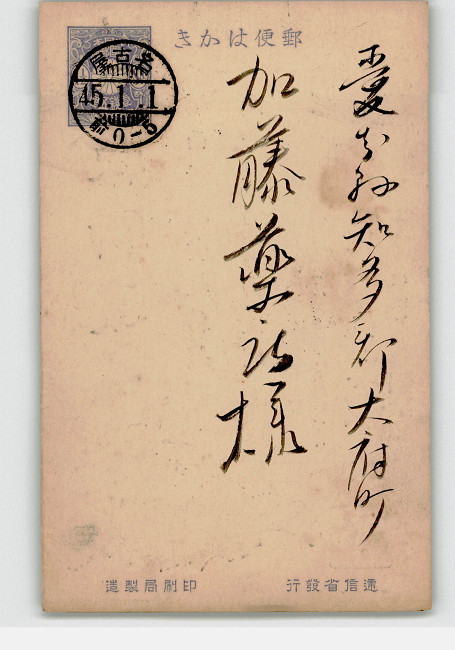 郵便はかき
名古屋
45.1.1
前0-5
愛知縣知多郡大府町
加藤薬店様
遞信省發行
印刷局製造